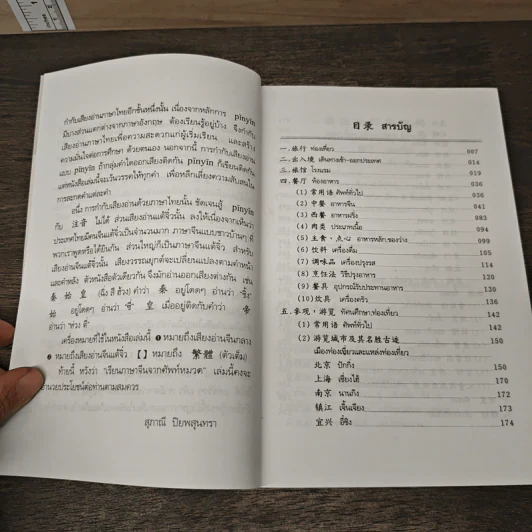 กำกับเสียงอ่านภาษาไทยอีกชั้นหนึ่งนั้น เนื่องจากหลักการ pinyin
มีบางส่วนแตกต่างจากภาษาอังกฤษ ต้องเรียนรู้อยู่บ้าง จึงกำกับ
เสียงอ่านภาษาไทยเพื่อความสะดวกแก่ผู้เริ่มเรียน และสร้าง
ความมั่นใจต่อการศึกษา ด้วยตนเอง นอกจากนี้ การกำกับเสียงอ่าน
แบบ pinyin ถ้ากลุ่มคำใดออกเสียงติดกัน pinyin ก็เขียนติดกัน
แต่หนังสือเล่มนี้จะเว้นวรรคให้ทุกคำ เพื่อหลีกเลี่ยงความสับสนใน
การสะกดคำแต่ละคำ
อนึ่ง การกำกับเสียงอ่านด้วยภาษาไทยนั้น ชัดเจนสู้ pinyin
กับ 注音 ไม่ได้ ส่วนเสียงอ่านแต้จิ๋วนั้น ลงให้เนื่องจากเห็นว่า
ประเทศไทยมีคนจีนแต้จิ๋วเป็นจำนวนมาก ภาษาจีนแบบชาวบ้านๆ ที่
พวกเราพูดหรือได้ยินกัน ส่วนใหญ่ก็เป็นภาษาจีนแต้จิ๋ว สำหรับ
เสียงอ่านแต้จิ๋วนั้น เสียงวรรณยุกต์จะเปลี่ยนแปลงตามคำหน้า
และคำหลัง ตัวหนังสือตัวเดียวกัน จึงมักอ่านออกเสียงต่างกัน เช่น
秦 始 皇 (ฉิ่ง สี ฮ้วง) คำว่า 秦 อยู่โดดๆ อ่านว่า "ซิ้ง"
อยู่โดดๆ อ่านว่า "ตี่" 皇 เมื่ออยู่ติดกับคำว่า 帝
อ่านว่า "ห่วง ตี่"
เครื่องหมายที่ใช้ในหนังสือเล่มนี้ ❶ หมายถึงเสียงอ่านจีนกลาง
❷ หมายถึงเสียงอ่านจีนแต้จิ๋ว 【 】 หมายถึง 繁體 (ตัวเต็ม)
ท้ายนี้ หวังว่า "เรียนภาษาจีนจากศัพท์หมวด" เล่มนี้คงจะ
อำนวยประโยชน์ต่อท่านตามสมควร
สุภาณี ปิยพสุนทรา
目录 สารบัญ
一.旅行 ท่องเที่ยว 007
二.出入境 เดินทางเข้า-ออกประเทศ 014
三.旅馆 โรงแรม 019
四.餐厅 ห้องอาหาร 036
(1) 常用语 ศัพท์ทั่วไป 036
(2) 中餐 อาหารจีน 041
(3) 西餐 อาหารฝรั่ง 083
(4) 肉类 ประเภทเนื้อ 094
(5) 主食・点心 อาหารหลัก,ของว่าง 099
(6) 饮料 เครื่องดื่ม 105
(7) 调味品 เครื่องปรุงรส 114
(8) 烹饪法 วิธีปรุงอาหาร 120
(9) 餐具 อุปกรณ์รับประทานอาหาร 130
(10)炊具 เครื่องครัว 136
五.参观・游览 ทัศนศึกษา,ท่องเที่ยว 142
(1) 常用语 ศัพท์ทั่วไป 142
(2) 游览城市及其名胜古迹
เมืองท่องเที่ยวและแหล่งท่องเที่ยว 150
北京 ปักกิ่ง 150
上海 เซี่ยงไฮ้ 170
南京 นานกิง 172
镇江 เจิ้นเจียง 173
宜兴 อี๋ซิง 174